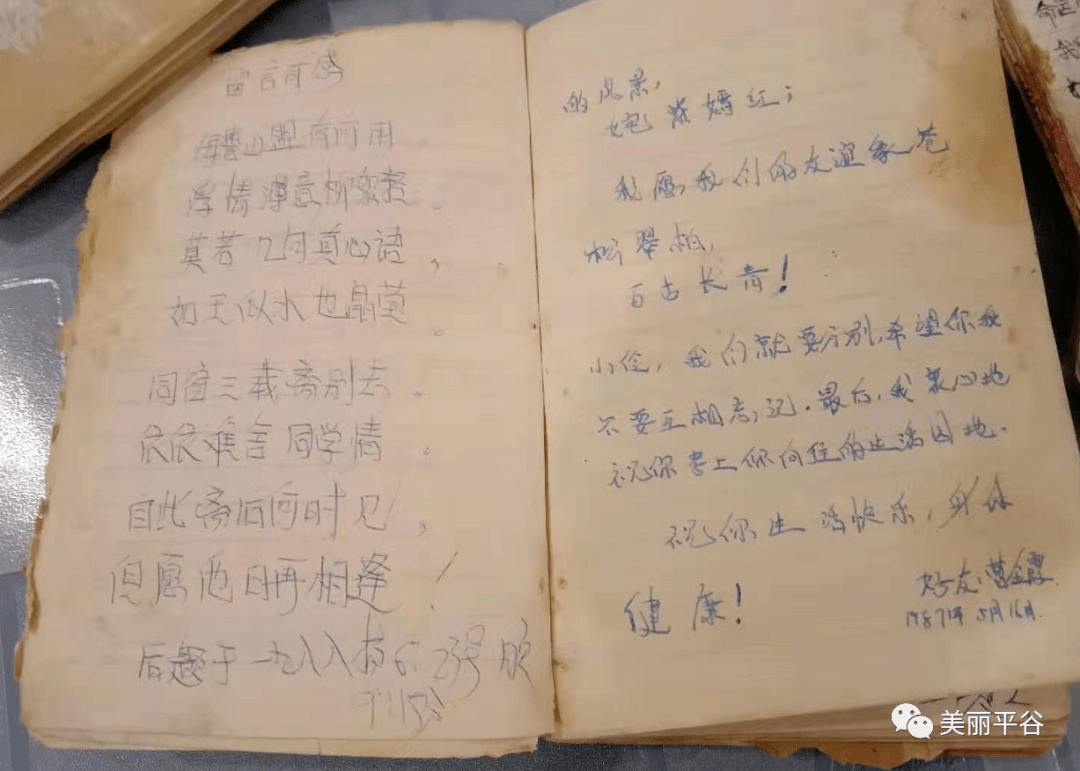 留言有感
海誓山盟有何用
浮情薄意
莫若几句真心语，
如玉似水也晶莹。
同窗三载离别去。
依依难言同学情。
自此离后何时见，
但愿他日再相逢！
后题于一九八八年6.23号
的风景，
姹紫嫣红；
我愿我们的友谊象苍
松翠柏，
百古长青！
小俭，我们就要分别，希望你我
不要互相忘记．最后，我衷心地
祝你考上你向往的生活园地．
祝你生活快乐，身体
健康！
好友：
1987年5月16日．
美丽平谷